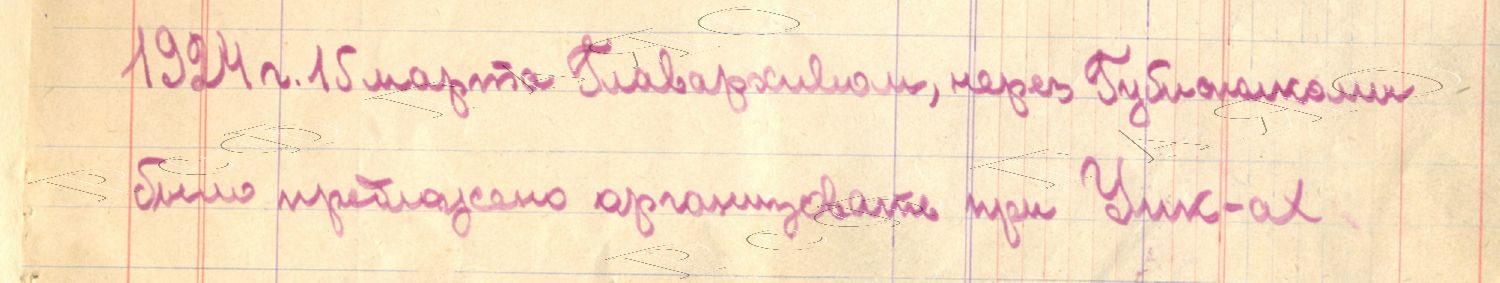 1924 г. 15 марта Главархивом, через Губисполкомы
было предложено организовать при Уик-ах